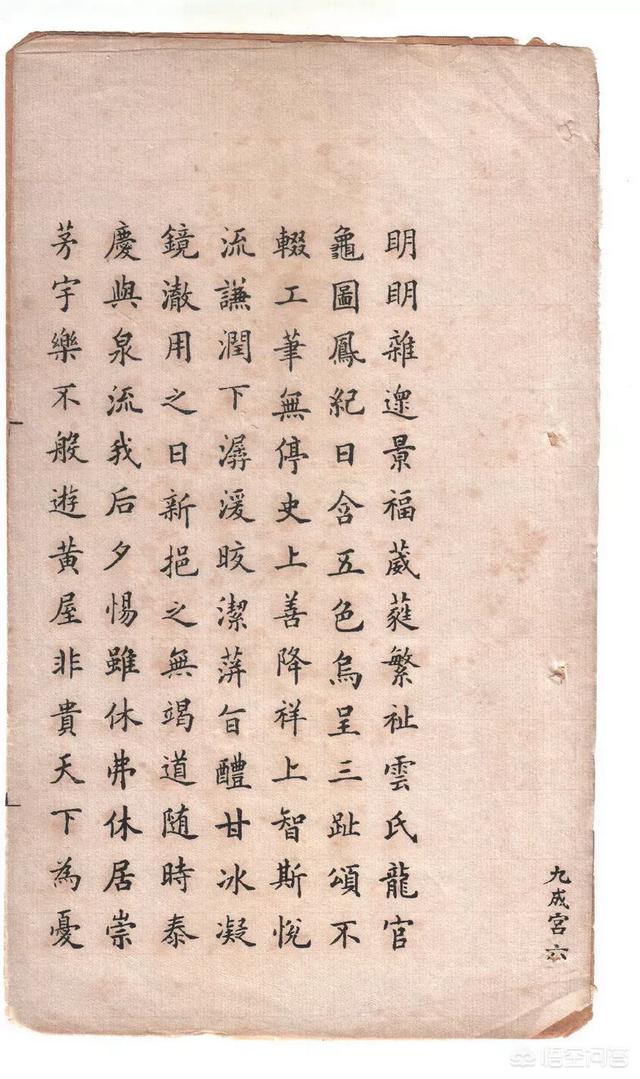 九成宮六
眀眀雜遝景福葳蕤繁祉雲氏龍官
龜圖鳳紀日含五色烏呈三趾頌不
輟工筆無停史上善降祥上智斯悅
流謙潤下潺湲晈潔蓱旨醴甘冰凝
鏡澈用之日新挹之無竭道随時泰
慶與泉流我后夕惕雖休弗休居崇
茅宇樂不般遊黃屋非貴天下為憂
悟空问答